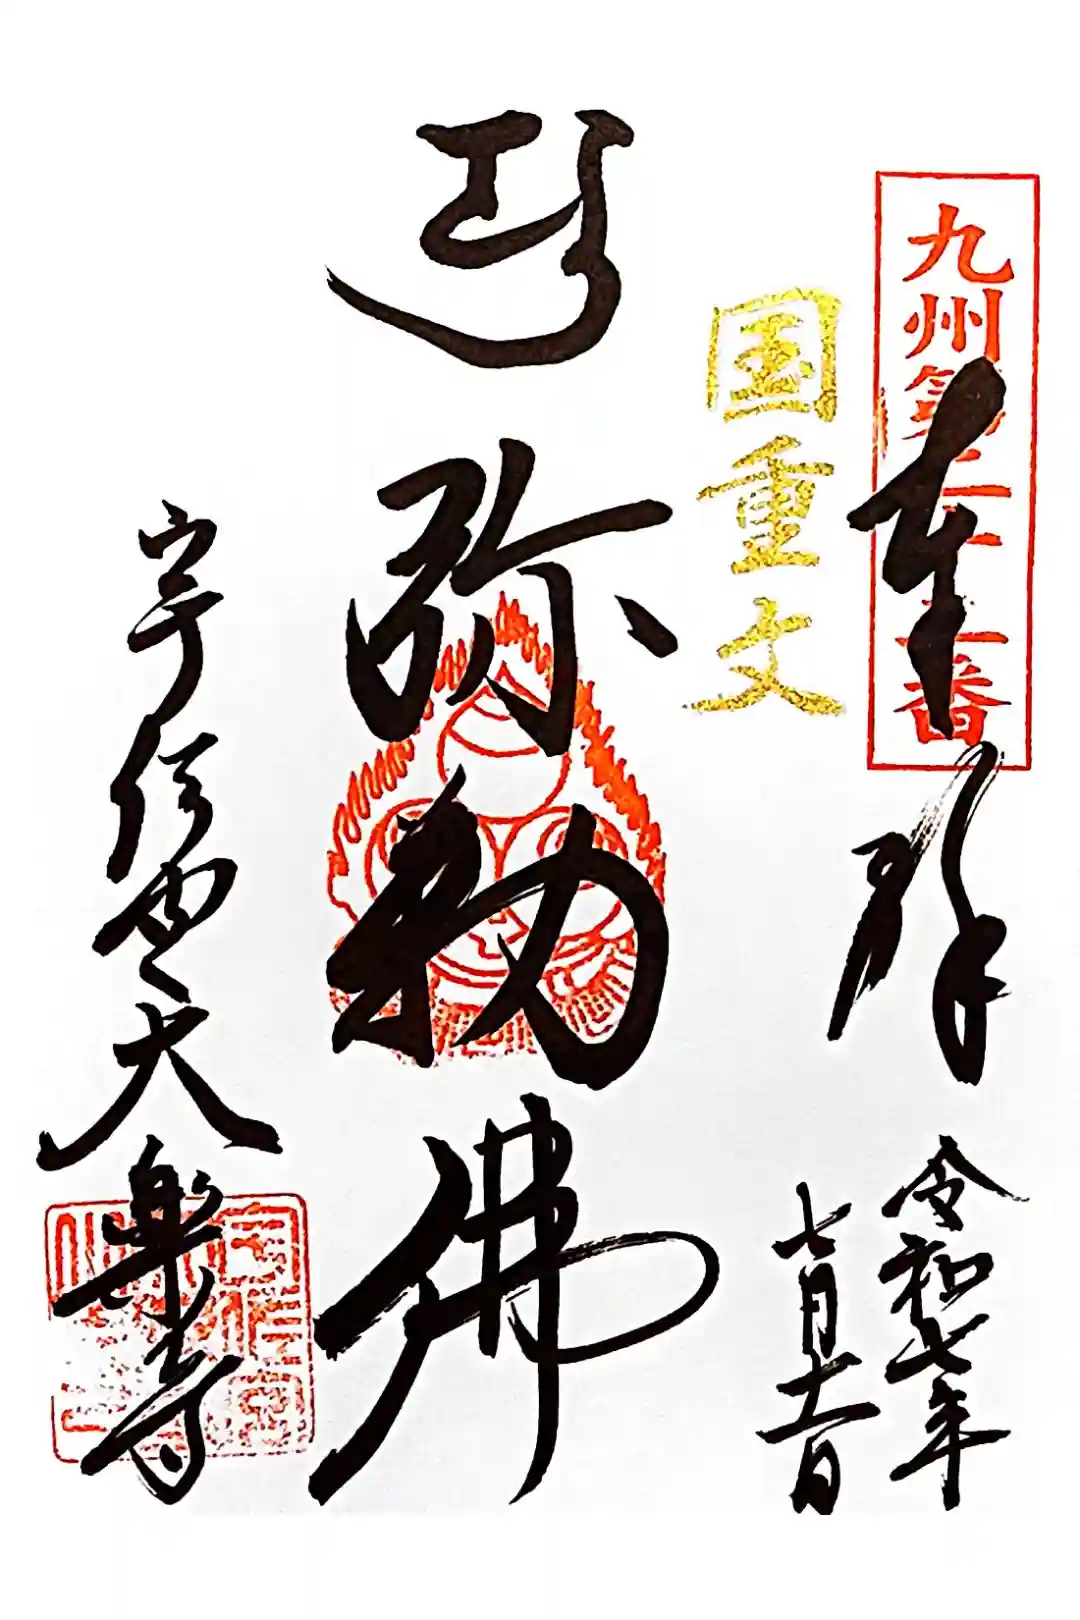 九州第二十番
奉拝
令和七年
七月十一日
国重文
弥勒佛
宇佐宮大樂寺